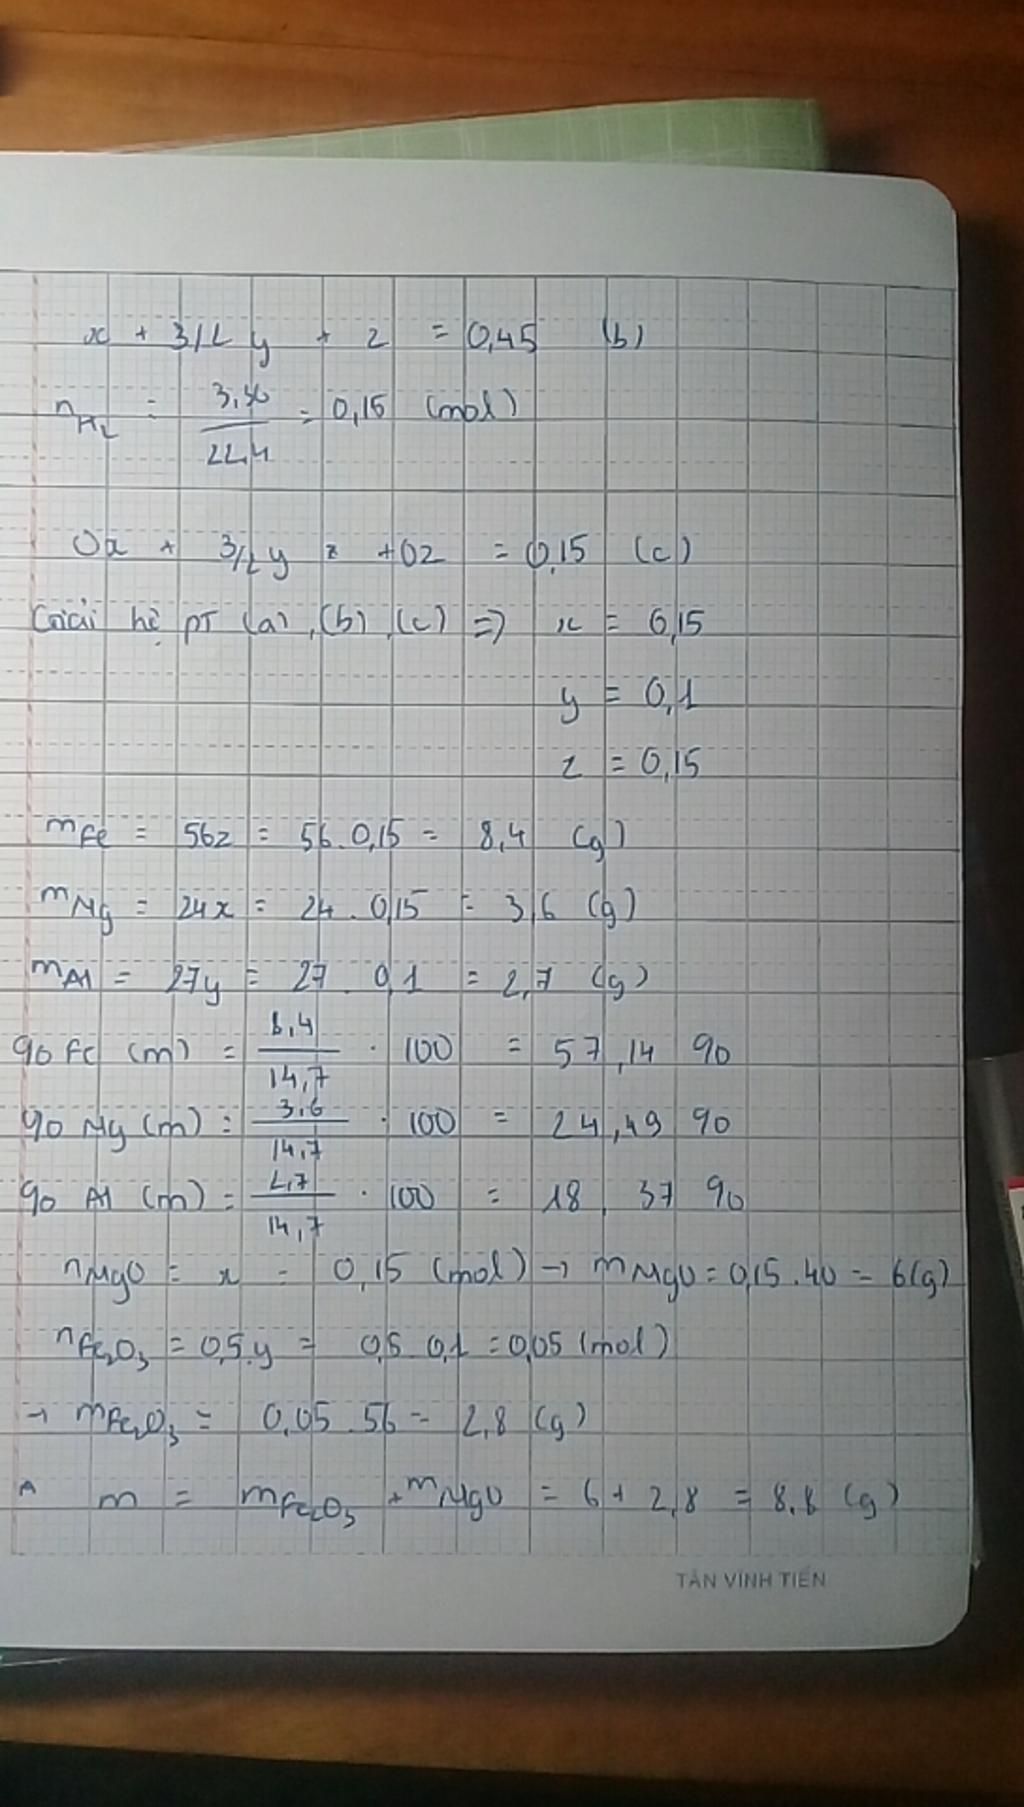 x + 3/2 y + z = 0,45 (b)
nH2 = 3,36/22,4 = 0,15 (mol)
0x + 3/2 y + 0z = 0,15 (c)
Giải hệ PT (a), (b), (c) => x = 0,15
y = 0,1
z = 0,15
mFe = 56z = 56.0,15 = 8,4 (g)
mMg = 24x = 24.0,15 = 3,6 (g)
mAl = 27y = 27.0,1 = 2,7 (g)
% Fe (m) = 8,4/14,7 . 100 = 57,14 %
% Mg (m) = 3,6/14,7 . 100 = 24,49 %
% Al (m) = 2,7/14,7 . 100 = 18,37 %
nMgO = x = 0,15 (mol) → mMgO = 0,15.40 = 6(g)
nFe2O3 = 0,5.y = 0,5 0,1 = 0,05 (mol)
→ mFe2O3 = 0,05.56 = 2,8 (g)
m = mFe2O3 + mMgO = 6 + 2,8 = 8,8 (g)
TÂN VĨNH TIẾN